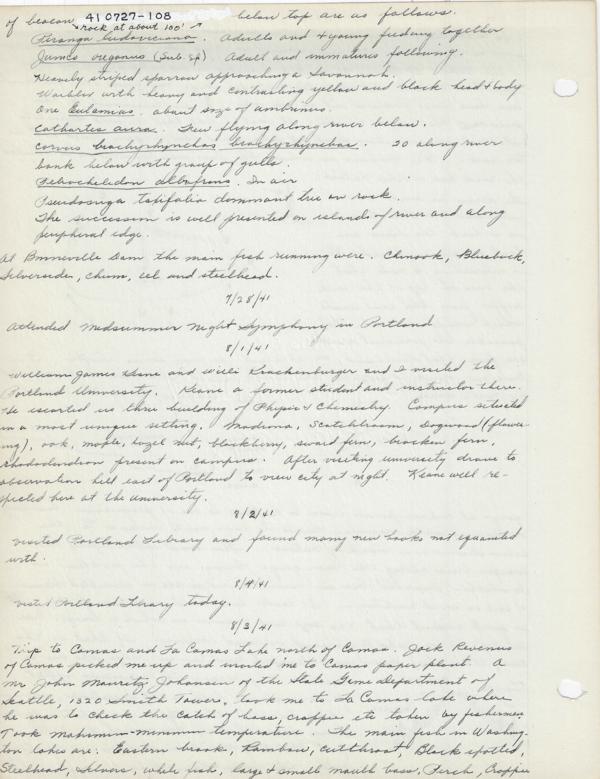 41 0727-108
of beacon rock at about 100' below top are as follows.
Piranga ludoviciana. Adults and young feeding together
Junco oreganus (Sub. sp) Adult and immatures following.
Heavily striped sparrow approaching a Savannah.
Warbler with heavy and contrasting yellow and black head & body
One Eutamias. about size of ambrinus.
Cathartes aura. Few flying along river below.
Corvus brachyrhynchos brachyrhynchos. 20 along river
bank below with group of gulls.
Petrochelidon albifrons. In air
Pseudosuga taxifolia dominant tree on rock.
The succession is well presented on islands of river and along
peripheral edge.
At Bonneville Dam the main fish running were. Chinook, Blueback,
Silversides, chum, eel and steelhead.
7/28/41
Attended Midsummer Night Symphony in Portland
8/1/41
William James Keane and Willis Krachenburger and I visited the
Portland University. Keane a former student and instructor there.
He escorted us thru building of Physics & Chemistry. Campus situated
in a most unique setting. Madrona, Scotchbroom, Dogwood (flower-
ing), oak, maple, hazel nut, blackberry, sword fern, bracken fern,
rhododendron present on campus. After visiting university drove to
observation hill east of Portland to view city at night. Keane well re-
spected here at the university.
8/2/41
visited Portland Library and found many new books not equainted
with.
8/4/41
visited Portland Library today.
8/3/41
Trip to Camas and La Camas Lake north of Camas. Jack Revenus
of Camas picked me up and invited me to Camas paper plant. A
Mr John Mauritz Johansen of the State Game Department of
Seattle, 1320 Smith Tower, took me to La Camas lake where
he was to check the catch of bass, crappie etc taken by fishermen
Took maximum-minimum temperature. The main fish in Washing-
ton lakes are: Eastern brook, Rainbow, cutthroat, Black spotted,
Steelhead, Silvers, white fish, large & small mouth bass, Perch, Crappie